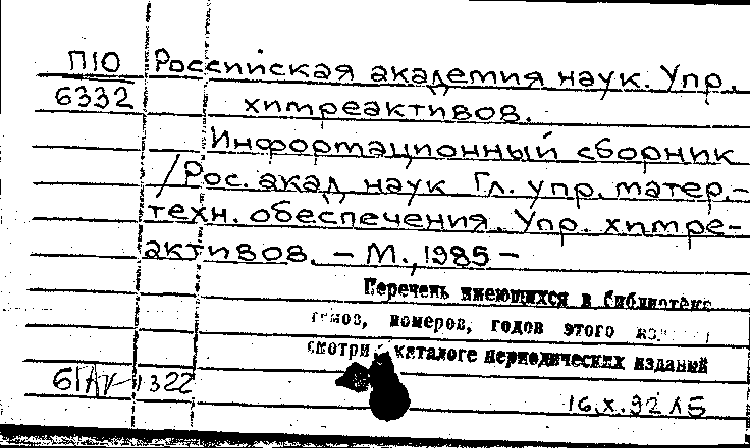 П10 Российская академия наук. Упр.
6332 химреактивов.
Информационный сборник
/Рос. акад наук Гл. упр. матер.-
техн. обеспечения. Упр. химре-
активов. - М., 1985 -
Перечень имеющихся в библиотеке
томов, номеров, годов этого
смотри каталоге периодических изданий
1322
16.X.92